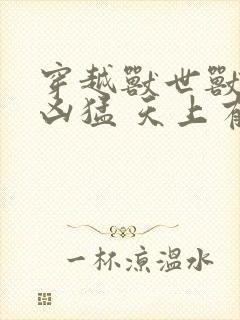 穿越獸世獸
凶猛 天上有
一杯涼溫水